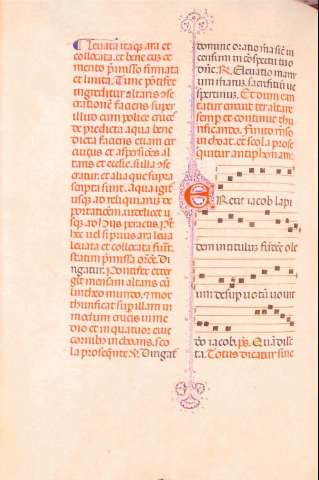 leuata itaq; ara et
collocata, et bene cum ce
mento p̄misso firmata
et linita. Tunc pōtifex
ingreditur altaris 9se
crationē faciens super
illud cum pollice cruce
de predicta aqua bene
dicta faciens etiam cir
cuitus et aspersiōes alta
ris et ecclie. si illa 9se
cratur. et alia que supra
scripta sunt. Aqua igit
usq; ad reliquiarum de
portatiōem
usq; ad peractis. Post
hec uel si prius ara leua
leuata et collocata fuit.
statim p̄missa ōrōe. Di
ngatur. Pontifex exter
git mensam altaris cū
lintheo mundo. et mox
thurificat sup illam in
modum crucis in me
dio et in quatuor eius
cornibus inchoans. sco
la prosequente. Dirigat
domine oratio mea sicut in
censum in conspectu tuo
dōne. R. Eleuatio manu
um mearum. sacrificium ue
spertinum. Et dum can
tatur circuit ter altare
semp et continue thu
rificando. Finito misso
inchoat. et scola prose
quitur antiphonam.
Erexit iacob lapi
dem in titulum fundens ole
um desup uotum uouit
deo iacob. ps. Quā dile
cta. Totus dicatur sine